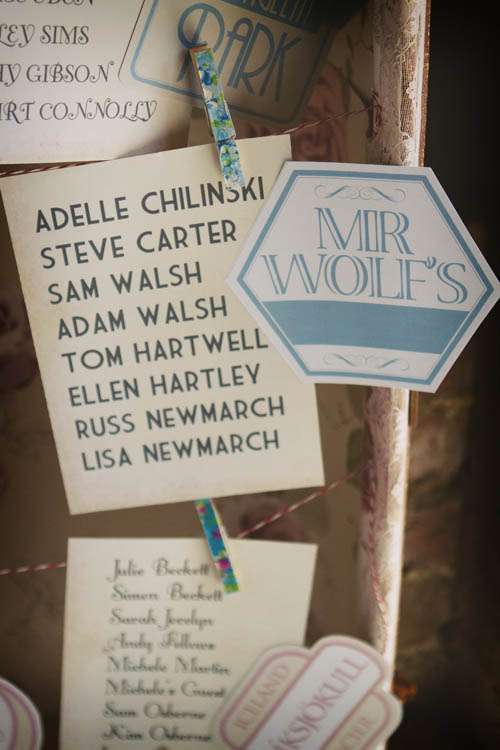 LEY SIMS
GIBSON
CONNOLLY
PARK
ADELLE CHILINSKI
STEVE CARTER
SAM WALSH
ADAM WALSH
TOM HARTWELL
ELLEN HARTLEY
RUSS NEWMARCH
LISA NEWMARCH
MR
WOLF'S
Julie Beckett
Simon Beckett
Sarah Jocelyn
Andy Fellows
Michele Martin
Michele's Guest
Sam Osborne
Kim Osborne
ICELAND